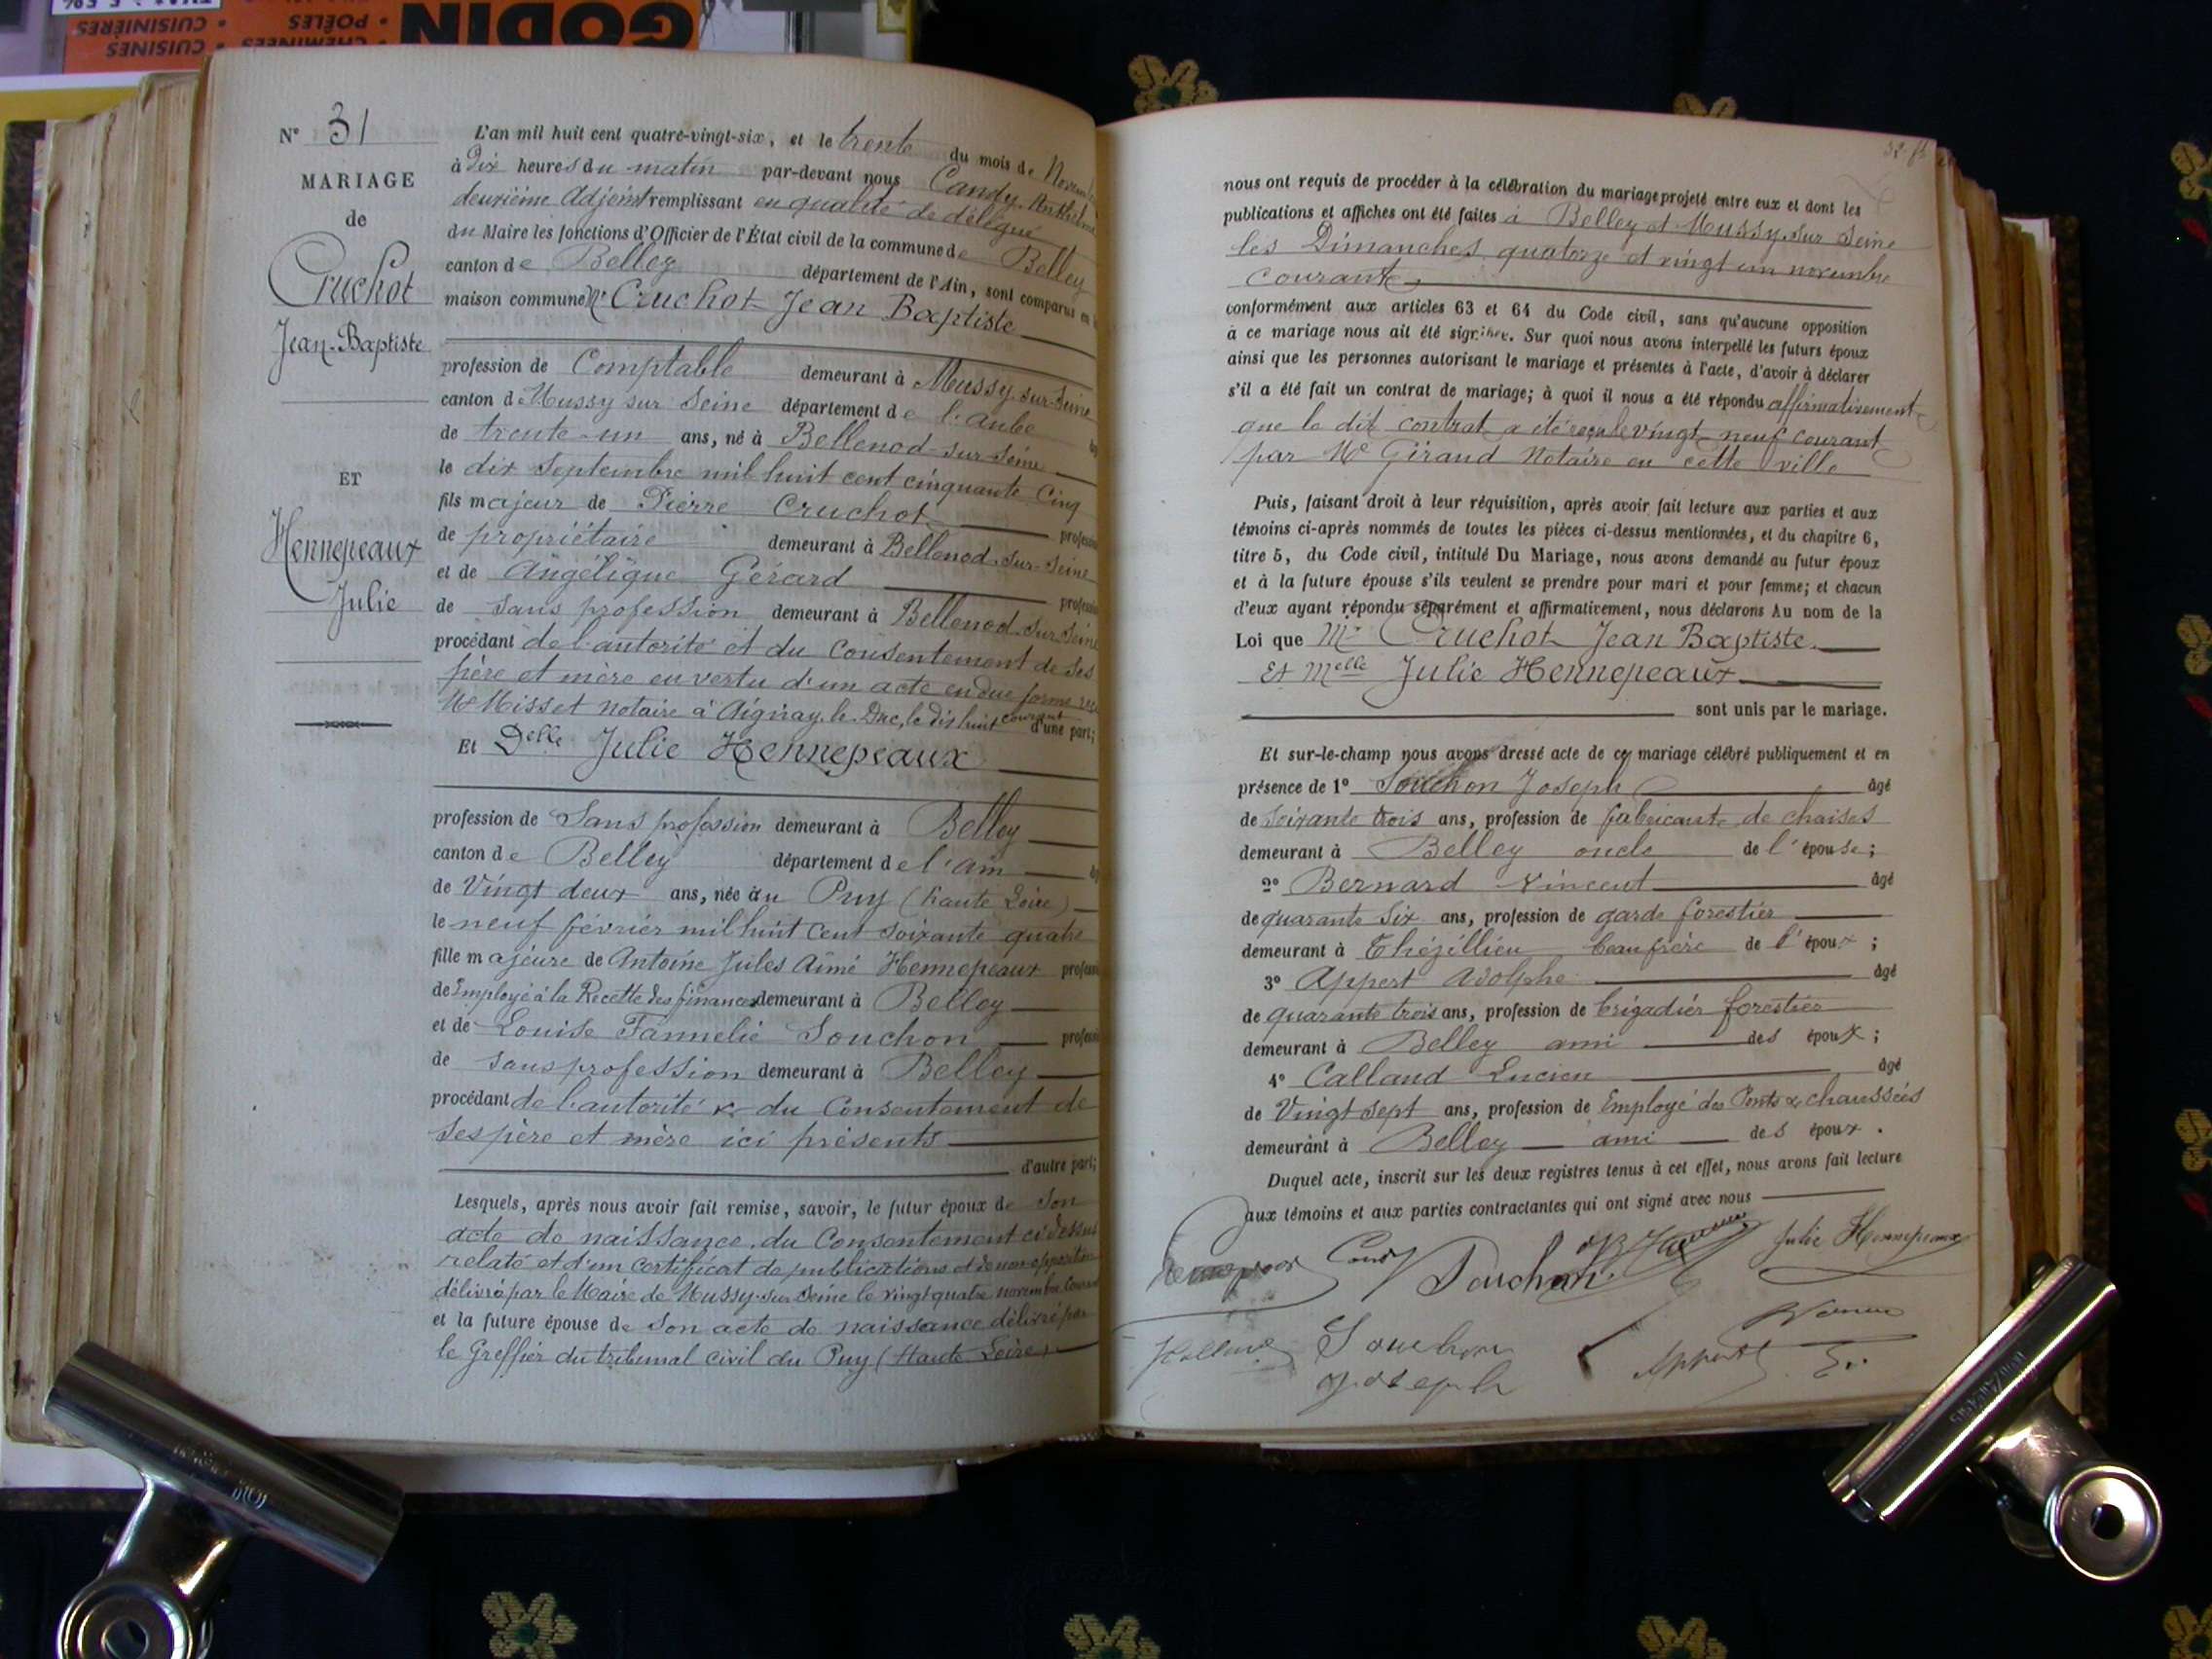 GODIN
CUISINES • CHEMINÉES •
CUISINIÈRES • POÊLES
N° 31
MARIAGE
de
Cruchot
Jean-Baptiste
ET
Hennepeaux
Julie
L'an mil huit cent quatre-vingt-six, et le trente du mois de Novembre
à Dix heures du matin par-devant nous Candy Anthelme
deuxième Adjoint remplissant en qualité de délégué
du Maire les fonctions d'Officier de l'État civil de la commune de Belley
canton de Belley département de l'Ain, sont comparus en
maison commune Mr Cruchot Jean Baptiste
profession de Comptable demeurant à Mussy-sur-Seine
canton de Mussy sur Seine département de l'Aube
de trente-un ans, né à Bellenod-sur-Seine
le dix septembre mil huit cent cinquante cinq
fils majeur de Pierre Cruchot
de propriétaire demeurant à Bellenod-sur-Seine
et de Angélique Gérard
de sans profession demeurant à Bellenod-sur-Seine
procédant de l'autorité et du Consentement de ses
père et mère en vertu d'un acte en due forme
Me Misset notaire à Aignay-le-Duc, le dix huit courant d'une part;
Et Delle Julie Hennepeaux
profession de Sans profession demeurant à Belley
canton de Belley département de l'Ain
de Vingt deux ans, née au Puy (haute Loire)
le neuf février mil huit cent soixante quatre
fille majeure de Antoine Jules Aimé Hennepeaux
de Employé à la Recette des finances demeurant à Belley
et de Louise Fannelie Souchon
de sans profession demeurant à Belley
procédant de l'autorité & du Consentement de
ses père et mère ici présents
d'autre part;
Lesquels, après nous avoir fait remise, savoir, le futur époux de Son
acte de naissance, du Consentement ci dessus
relaté et d'un Certificat de publications et de non opposition
délivré par le Maire de Mussy-sur-Seine le vingt quatre novembre Courant
et la future épouse de Son acte de naissance délivré par
le Greffier du tribunal civil du Puy (Haute Loire)
nous ont requis de procéder à la célébration du mariage projeté entre eux et dont les
publications et affiches ont été faites à Belley et Mussy-sur-Seine
les Dimanches quatorze et vingt un novembre
courant
conformément aux articles 63 et 64 du Code civil, sans qu'aucune opposition
à ce mariage nous ait été signifiée. Sur quoi nous avons interpellé les futurs époux
ainsi que les personnes autorisant le mariage et présentes à l'acte, d'avoir à déclarer
s'il a été fait un contrat de mariage; à quoi il nous a été répondu affirmativement
que le dit contrat a été reçu le vingt-neuf courant
par Me Giraud Notaire en cette ville
Puis, faisant droit à leur réquisition, après avoir fait lecture aux parties et aux
témoins ci-après nommés de toutes les pièces ci-dessus mentionnées, et du chapitre 6,
titre 5, du Code civil, intitulé Du Mariage, nous avons demandé au futur époux
et à la future épouse s'ils veulent se prendre pour mari et pour femme; et chacun
d'eux ayant répondu séparément et affirmativement, nous déclarons Au nom de la
Loi que Mr Cruchot Jean Baptiste
Et Melle Julie Hennepeaux
sont unis par le mariage.
Et sur-le-champ nous avons dressé acte de ce mariage célébré publiquement et en
présence de 1° Souchon Joseph âgé
de soixante trois ans, profession de fabricant de chaises
demeurant à Belley oncle de l'épouse;
2° Bernard Vincent âgé
de quarante six ans, profession de garde forestier
demeurant à Thézillieu beau frère de l'époux;
3° Appert Adolphe âgé
de quarante trois ans, profession de brigadier forestier
demeurant à Belley ami des époux;
4° Calland Lucien âgé
de Vingt sept ans, profession de Employé des Ponts & chaussées
demeurant à Belley ami des époux.
Duquel acte, inscrit sur les deux registres tenus à cet effet, nous avons fait lecture
aux témoins et aux parties contractantes qui ont signé avec nous
Souchon Julie Hennepeaux
Souchon Appert
joseph